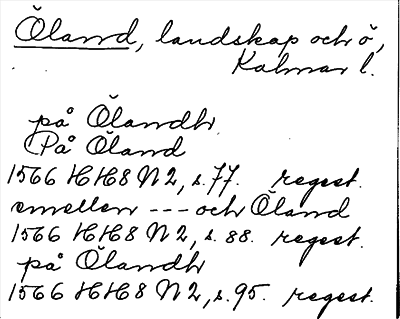 Öland, landskap och ö,
Kalmar l.
på Ölandh
På Öland
1566 HH8 N 2, s. 77. regest.
emellen --- och Öland
1566 HH8 N 2, s. 88. regest.
på Ölandh
1566 HH8 N 2, s. 95. regest.